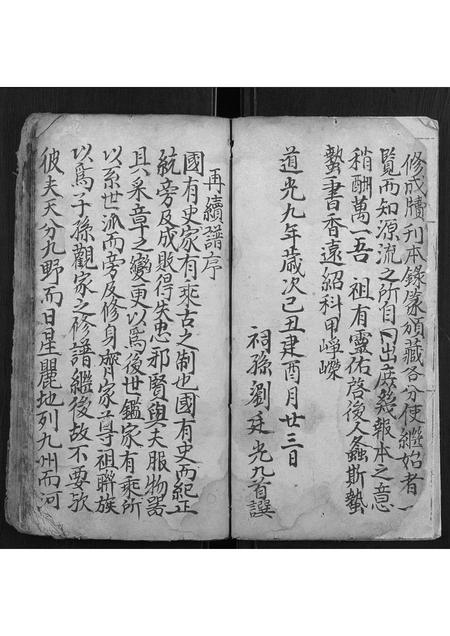 修成牘刊本錄篆頒藏各分使繼始者一
覽而知源流之所自出庶幾報本之意
稍酬萬一吾　祖有靈佑啓後人螽斯蟄
蟄書香遠紹科甲崢嶸
道光九年歲次己丑建酉月廿三日
祠孫劉廷光九首譔
再續譜序
國有史家有乘古之制也國有史而紀正
統旁及成敗得失忠邪賢與夫服物器
具采章之變更以為後世鑑家有乘所
以系世派而旁及修身齊家尊祖聯族
以為子孫觀家之修譜繼後故不要歟
彼夫天分九野而日星麗地列九州而河